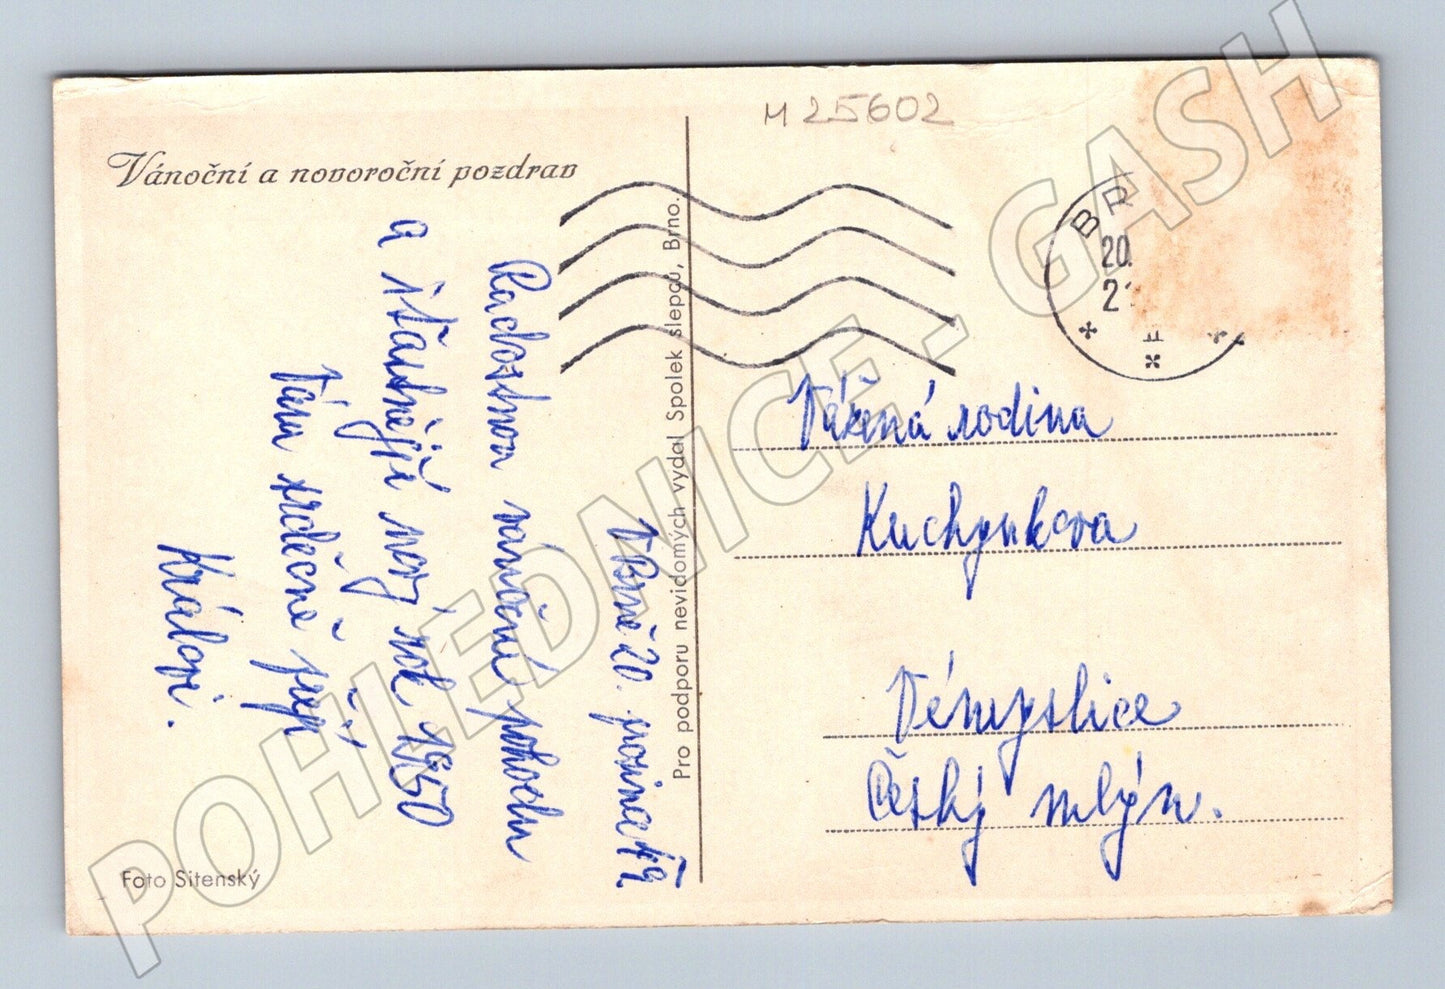 M 25602
Vánoční a novoroční pozdrav
V Brně 20. prosince 49
Radostnou vánoční pohodu
a šťastnější nový rok 1950
Vám srdečně přejí
Královi.
Pro podporu nevidomých vydal Spolek slepců, Brno.
BR
20.
Vážená rodina
Kuchynkova
Vémyslice
Český mlýn.
Foto Sitenský
POHLEDNICE - GASH